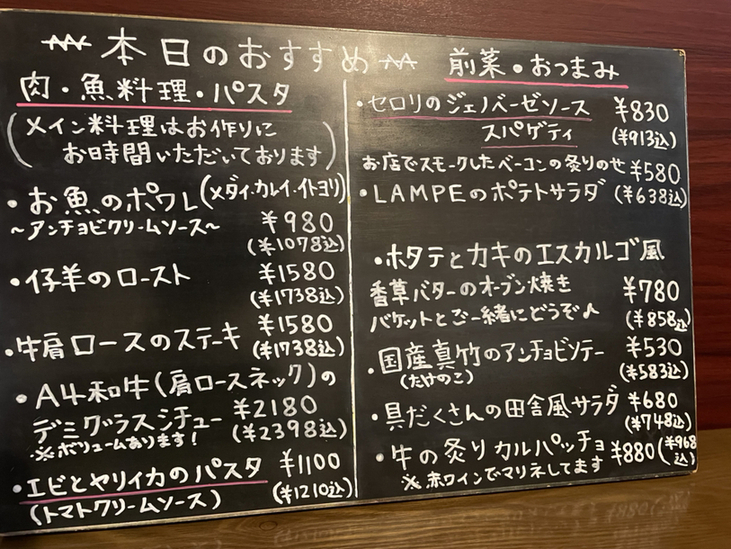 本日のおすすめ
肉・魚料理・パスタ
(メイン料理はお作りに
お時間いただいております)
・お魚のポワレ(メダイ・カレイ・イトヨリ)
~アンチョビクリームソース~ ¥980
(¥1078込)
・仔羊のロースト ¥1580
(¥1738込)
・牛肩ロースのステーキ ¥1580
(¥1738込)
・A4和牛(肩ロースネック)の
デミグラスシチュー ¥2180
※ボリュームあります! (¥2398込)
・エビとヤリイカのパスタ ¥1100
(トマトクリームソース) (¥1210込)
前菜・おつまみ
・セロリのジェノベーゼソース ¥830
スパゲティ (¥913込)
お店でスモークしたベーコンの炙りのせ ¥580
・LAMPEのポテトサラダ (¥638込)
・ホタテとカキのエスカルゴ風
香草バターのオーブン焼き ¥780
バケットとご一緒にどうぞ♪ (¥858込)
・国産真竹のアンチョビソテー ¥530
(たけのこ) (¥583込)
・具だくさんの田舎風サラダ ¥680
(¥748込)
・牛の炙りカルパッチョ ¥880(¥968込)
※赤ワインでマリネしてます